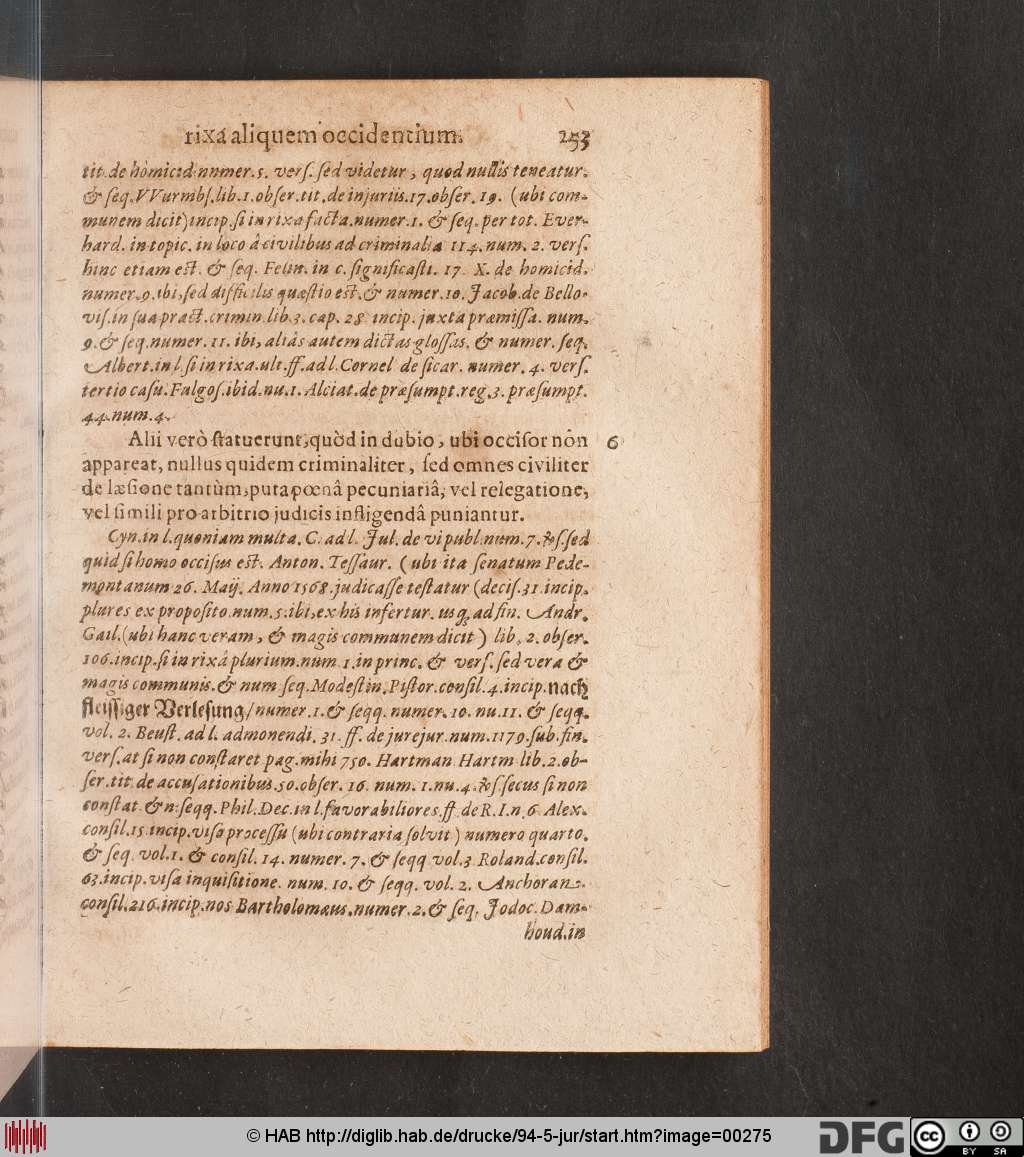 rixâ aliquem occidentium. 253
tit. de homicid numer. 5. verſ. ſed videtur, quod nullis teneatur.
& ſeq. VVurmbſ. lib. 1. obſer. tit. de injuriis. 17. obſer. 19. (ubi com-
munem dicit) incip. ſi in rixa facta. numer. 1. & ſeq. per tot. Ever-
hard. in topic. in loco â civilibus ad criminalia 114. num. 2. verſ.
hinc etiam eſt. & ſeq. Felin. in c. ſignificaſti. 17. X. de homicid.
numer. 9. ibi, ſed difficilis quæſtio eſt. & numer. 10. Jacob. de Bello-
viſ. in ſua pract. crimin. lib. 3. cap. 28 incip. juxta præmiſſa. num.
9. & ſeq. numer. 11. ibi, aliàs autem dictas gloſſas. & numer. ſeq.
Albert. in l. ſi in rixa. ult. ff. ad l. Cornel de ſicar. numer. 4. verſ.
tertio caſu. Fulgoſ. ibid. nu. 1. Alciat. de præſumpt. reg. 3. præſumpt.
44. num. 4.
Alii verò ſtatuerunt, quòd in dubio, ubi occiſor non 6
appareat, nullus quidem criminaliter, ſed omnes civiliter
de læſione tantùm, puta pœnâ pecuniariâ, vel relegatione,
vel ſimili pro arbitrio judicis infligendâ puniantur.
Cyn. in l. quoniam multa. C. ad l. Jul. de vi publ. num. 7. &ſ. ſed
quid ſi homo occiſus eſt. Anton. Teſſaur. (ubi ita ſenatum Pede-
montanum 26. Maij. Anno 1568. judicaſſe teſtatur (deciſ. 31. incip.
plures ex propoſito. num. 5. ibi, ex his infertur. usq; ad fin. Andr.
Gail. (ubi hanc veram, & magis communem dicit) lib. 2. obſer.
106. incip. ſi in rixâ plurium. num 1. in princ. & verſ. ſed vera &
magis communis. & num ſeq. Modeſtin. Piſtor. conſil. 4. incip. nach
fleiſſiger Verleſung / numer. 1. & ſeqq. numer. 10. nu. 11. & ſeqq.
vol. 2. Beuſt. ad l. admonendi. 31. ff. de jurejur. num. 1179. ſub. fin.
verſ. at ſi non conſtaret pag. mihi 750. Hartman Hartm lib. 2. ob-
ſer. tit. de accuſationibus. 50. obſer. 16. num. 1. nu. 4. &ſ. ſecus ſi non
conſtat. & n. ſeqq. Phil. Dec. in l. favorabiliores. ff. de R. I. n. 6 Alex.
conſil. 15. incip. viſa proceſſu (ubi contraria ſolvit) numero quarto.
& ſeq. vol. 1. & conſil. 14. numer. 7. & ſeqq vol. 3 Roland. conſil.
63. incip. viſa inquiſitione. num. 10. & ſeqq. vol. 2. Anchoran.
conſil. 216. incip. nos Bartholomæus. numer. 2. & ſeq. Jodoc. Dam-
houd. in
© HAB http://diglib.hab.de/drucke/94-5-jur/start.htm?image=00275
DFG cc BY SA